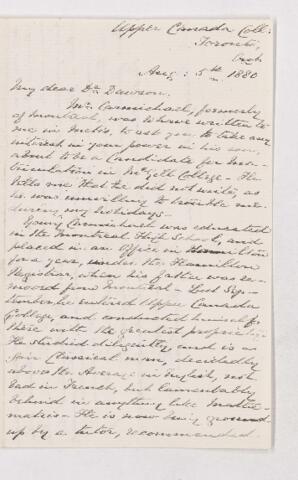 Upper Canada Coll:
Toronto,
Aug: 5th 1880
My dear Dr. Dawson.
Mr. Carmichael, formerly
of Montreal, was to have written to
me in Metis, to ask you to take any
interest in your power in his son,
about to be a Candidate for
in McGill College - He
tells me that he did not write, as
he was unwilling to trouble me
during my holidays.
Young Carmichael was educated
in the Montreal High School, and
placed in an Office
for a year, under Mr. Hamilton
Registrar, when his father was re-
moved from Montreal - Last Sep-
tember he entered Upper Canada
College, and conducted himself
there with the greatest propriety.
He studied diligently and is a
fair Classical man, decidedly
above the Average in English, not
bad in French, but lamentably
behind in anything like Mathe-
matics - He is now being ground
up by a tutor, recommended